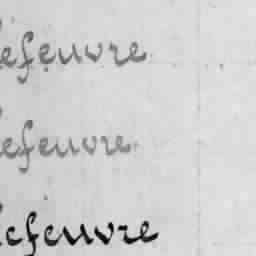 lefeuvre
lefeuvre
lefeuvre